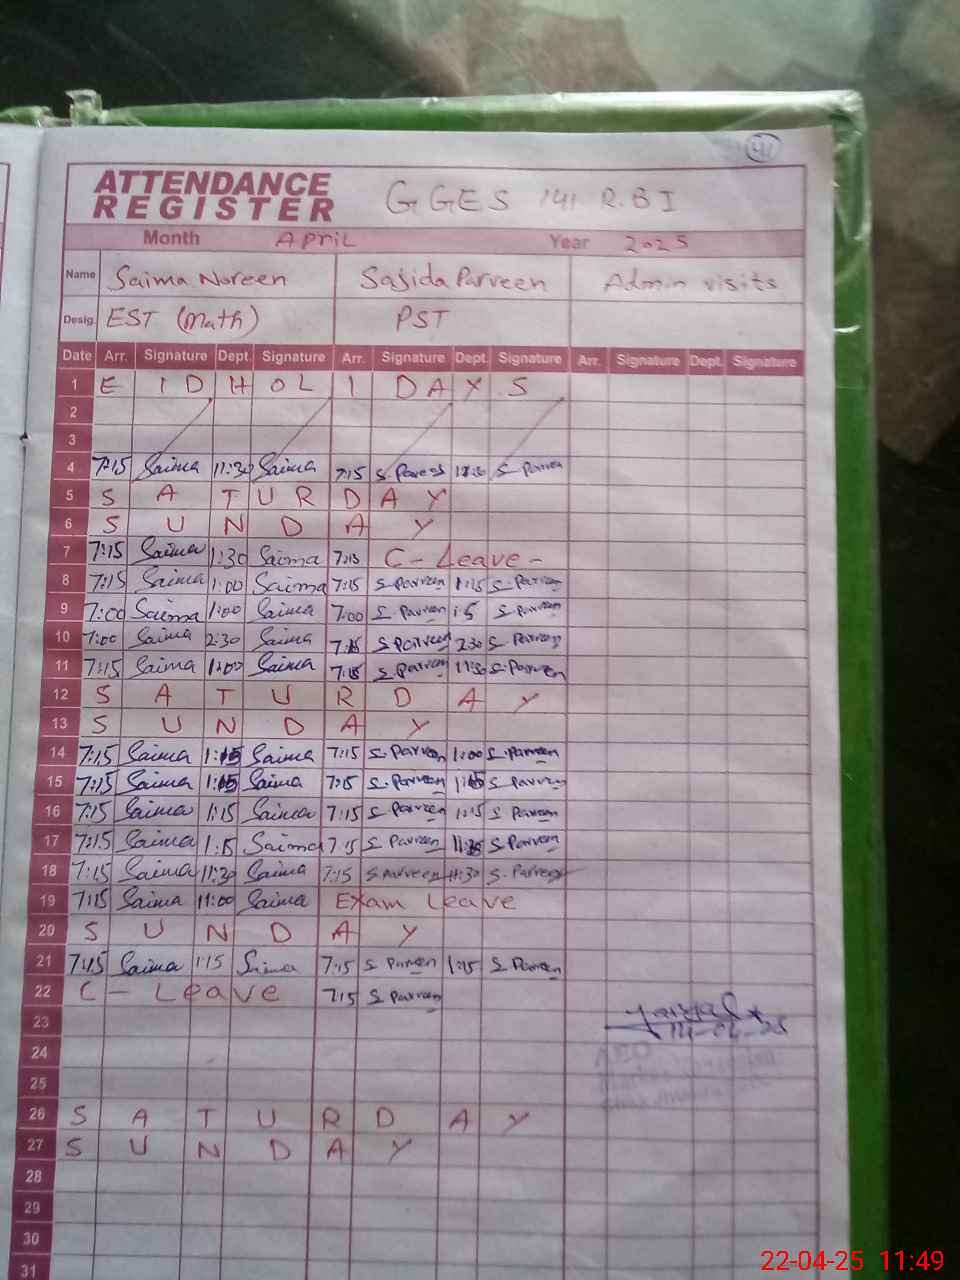 41
ATTENDANCE
REGISTER
GGES 141 R.B I
Month April Year 2025
Name Saima Noreen Sajida Parveen Admin visits
Desig. EST (Math) PST
Date Arr. Signature Dept. Signature Arr. Signature Dept. Signature Arr. Signature Dept. Signature
1 E I D H O L I D A Y S
2
3
4 7:15 Saima 11:30 Saima 7:15 S. Parveen S. Parveen
5 S A T U R D A Y
6 S U N D A Y
7 7:15 Saima 1:30 Saima 7:15 C - Leave -
8 7:15 Saima 1:00 Saima 7:15 S. Parveen 1:15 S. Parveen
9 7:00 Saima 1:00 Saima 7:00 S. Parveen S. Parveen
10 7:00 Saima 2:30 Saima 7:15 S Parveen 2:30 S. Parveen
11 7:15 Saima 1:00 Saima 7:15 S. Parveen 11:30 S. Parveen
12 S A T U R D A Y
13 S U N D A Y
14 7:15 Saima 1:15 Saima 7:15 S. Parveen 1:00 S. Parveen
15 7:15 Saima 1:15 Saima 7:15 S. Parveen S. Parveen
16 7:15 Saima 1:15 Saima 7:15 S. Parveen 1:15 S. Parveen
17 7:15 Saima 1:15 Saima 7:15 S Parveen S. Parveen
18 7:15 Saima 11:30 Saima 7:15 S. Parveen 11:30 S. Parveen
19 7:15 Saima 11:00 Saima Exam Leave
20 S U N D A Y
21 7:15 Saima 1:15 Saima 7:15 S Parveen 1:15 S. Parveen
22 C - Leave 7:15 S Parveen
23
14-04-25
24
25
26 S A T U R D A Y
27 S U N D A Y
28
29
30
31
22-04-25 11:49